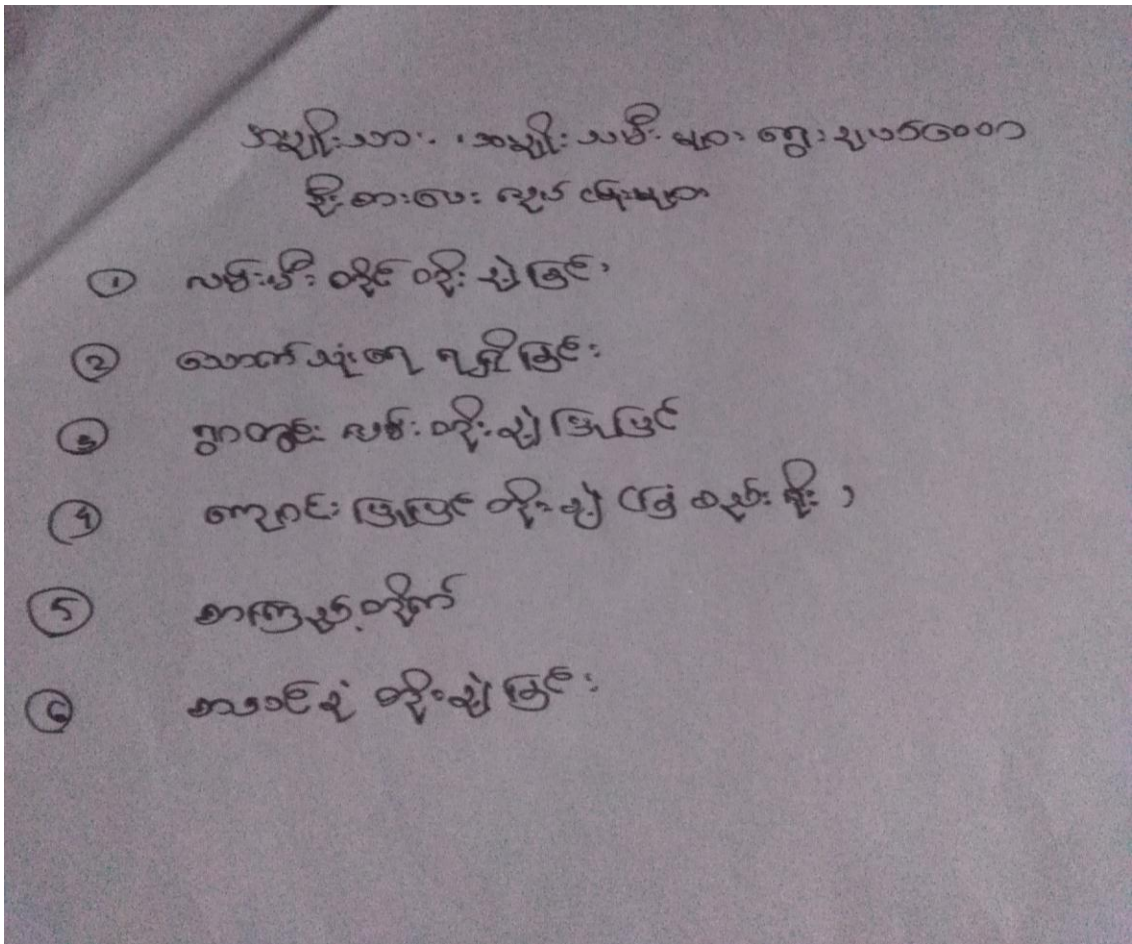 အမျိုးသား၊ အမျိုးသမီး များ ရွေးချယ်သော
ဦးစားပေး လုပ်ငန်းများ
① လမ်းမီး တိုင် တိုးချဲ့ခြင်း
② သောက်သုံးရေ ရရှိခြင်း
③ ရွာတွင်း လမ်း တိုးချဲ့ပြုပြင်
④ ကျောင်း ပြုပြင် တိုးချဲ့ (ခြံစည်းရိုး)
⑤ စာကြည့်တိုက်
⑥ စာသင်ခုံ တိုးချဲ့ခြင်း